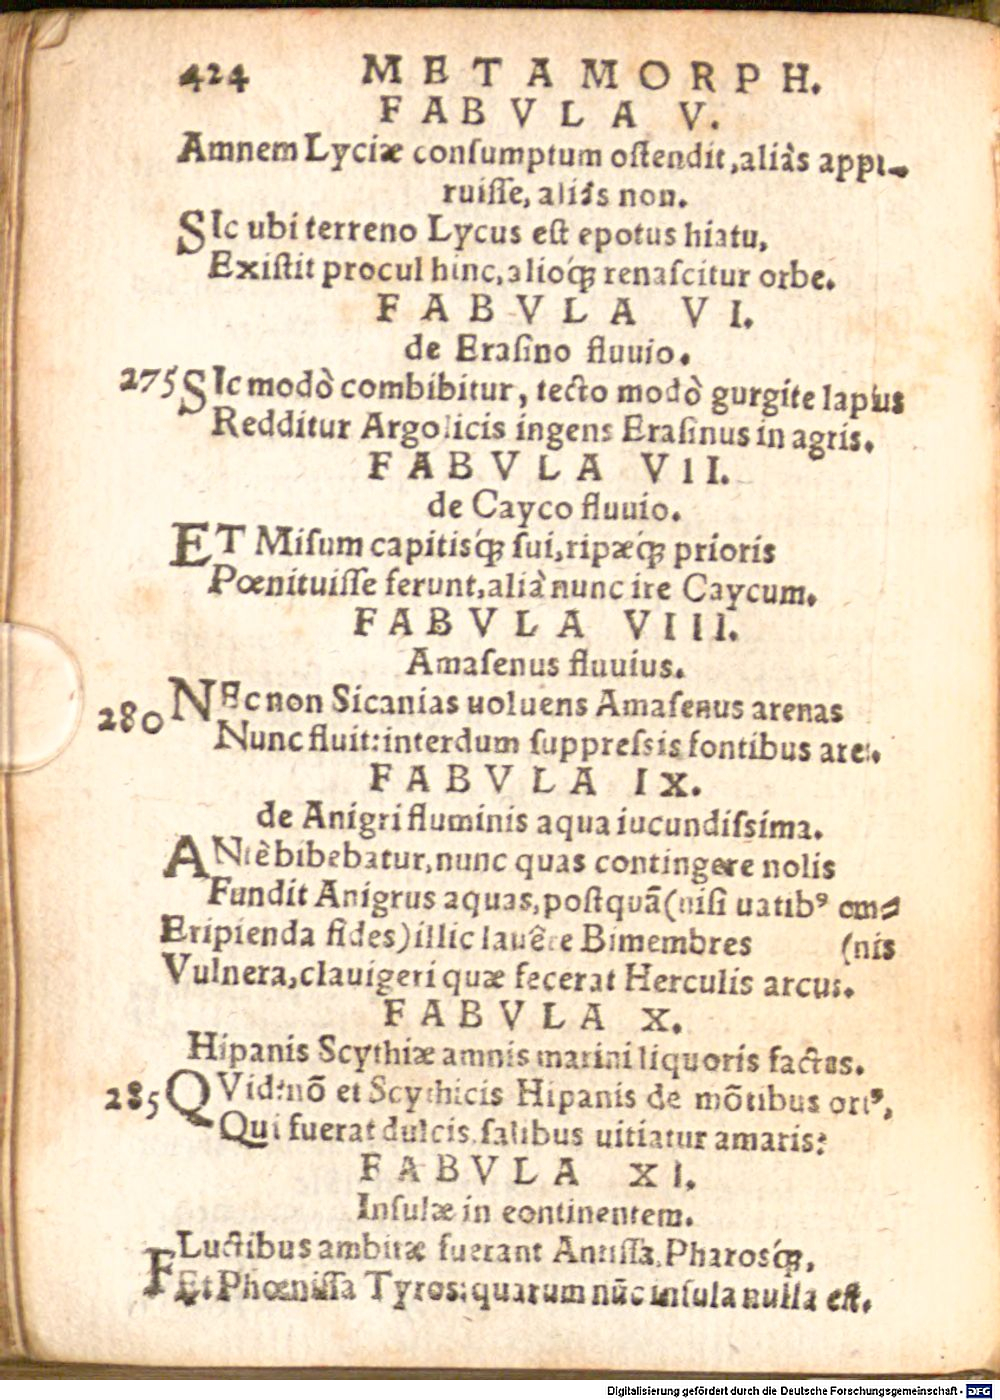 424 METAMORPH.
FABVLA V.
Amnem Lyciæ conſumptum oſtendit, aliàs appa-
ruiſſe, aliàs non.
SIc ubi terreno Lycus eſt epotus hiatu,
Exiſtit procul hinc, alioq́ꝫ renaſcitur orbe.
FABVLA VI.
de Eraſino fluuio.
275 SIc modò combibitur, tecto modò gurgite lapſus
Redditur Argolicis ingens Eraſinus in agris.
FABVLA VII.
de Cayco fluuio.
ET Miſum capitisq́ꝫ ſui, ripæq́ꝫ prioris
Pœnituiſſe ferunt, alià nunc ire Caycum.
FABVLA VIII.
Amaſenus fluuius.
NEc non Sicanias uoluens Amaſenus arenas
280 Nunc fluit: interdum ſuppreſsis fontibus aret.
FABVLA IX.
de Anigri fluminis aqua iucundiſsima.
ANtè bibebatur, nunc quas contingere nolis
Fundit Anigrus aquas, poſtquã (niſi uatibꝰ om=
Eripienda fides) illic lauêre Bimembres (nis
Vulnera, clauigeri quæ fecerat Herculis arcus.
FABVLA X.
Hipanis Scythiæ amnis marini liquoris factus.
285 QVid? nõ et Scythicis Hipanis de mõtibus ortꝰ,
Qui fuerat dulcis, ſalibus uitiatur amaris?
FABVLA XI.
Inſulæ in continentem.
FLuctibus ambitæ fuerant Antiſſa, Pharosq́ꝫ,
Et Phœniſſa Tyros: quarum nũc inſula nulla eſt.
Digitalisierung gefördert durch die Deutsche Forschungsgemeinschaft - DFG